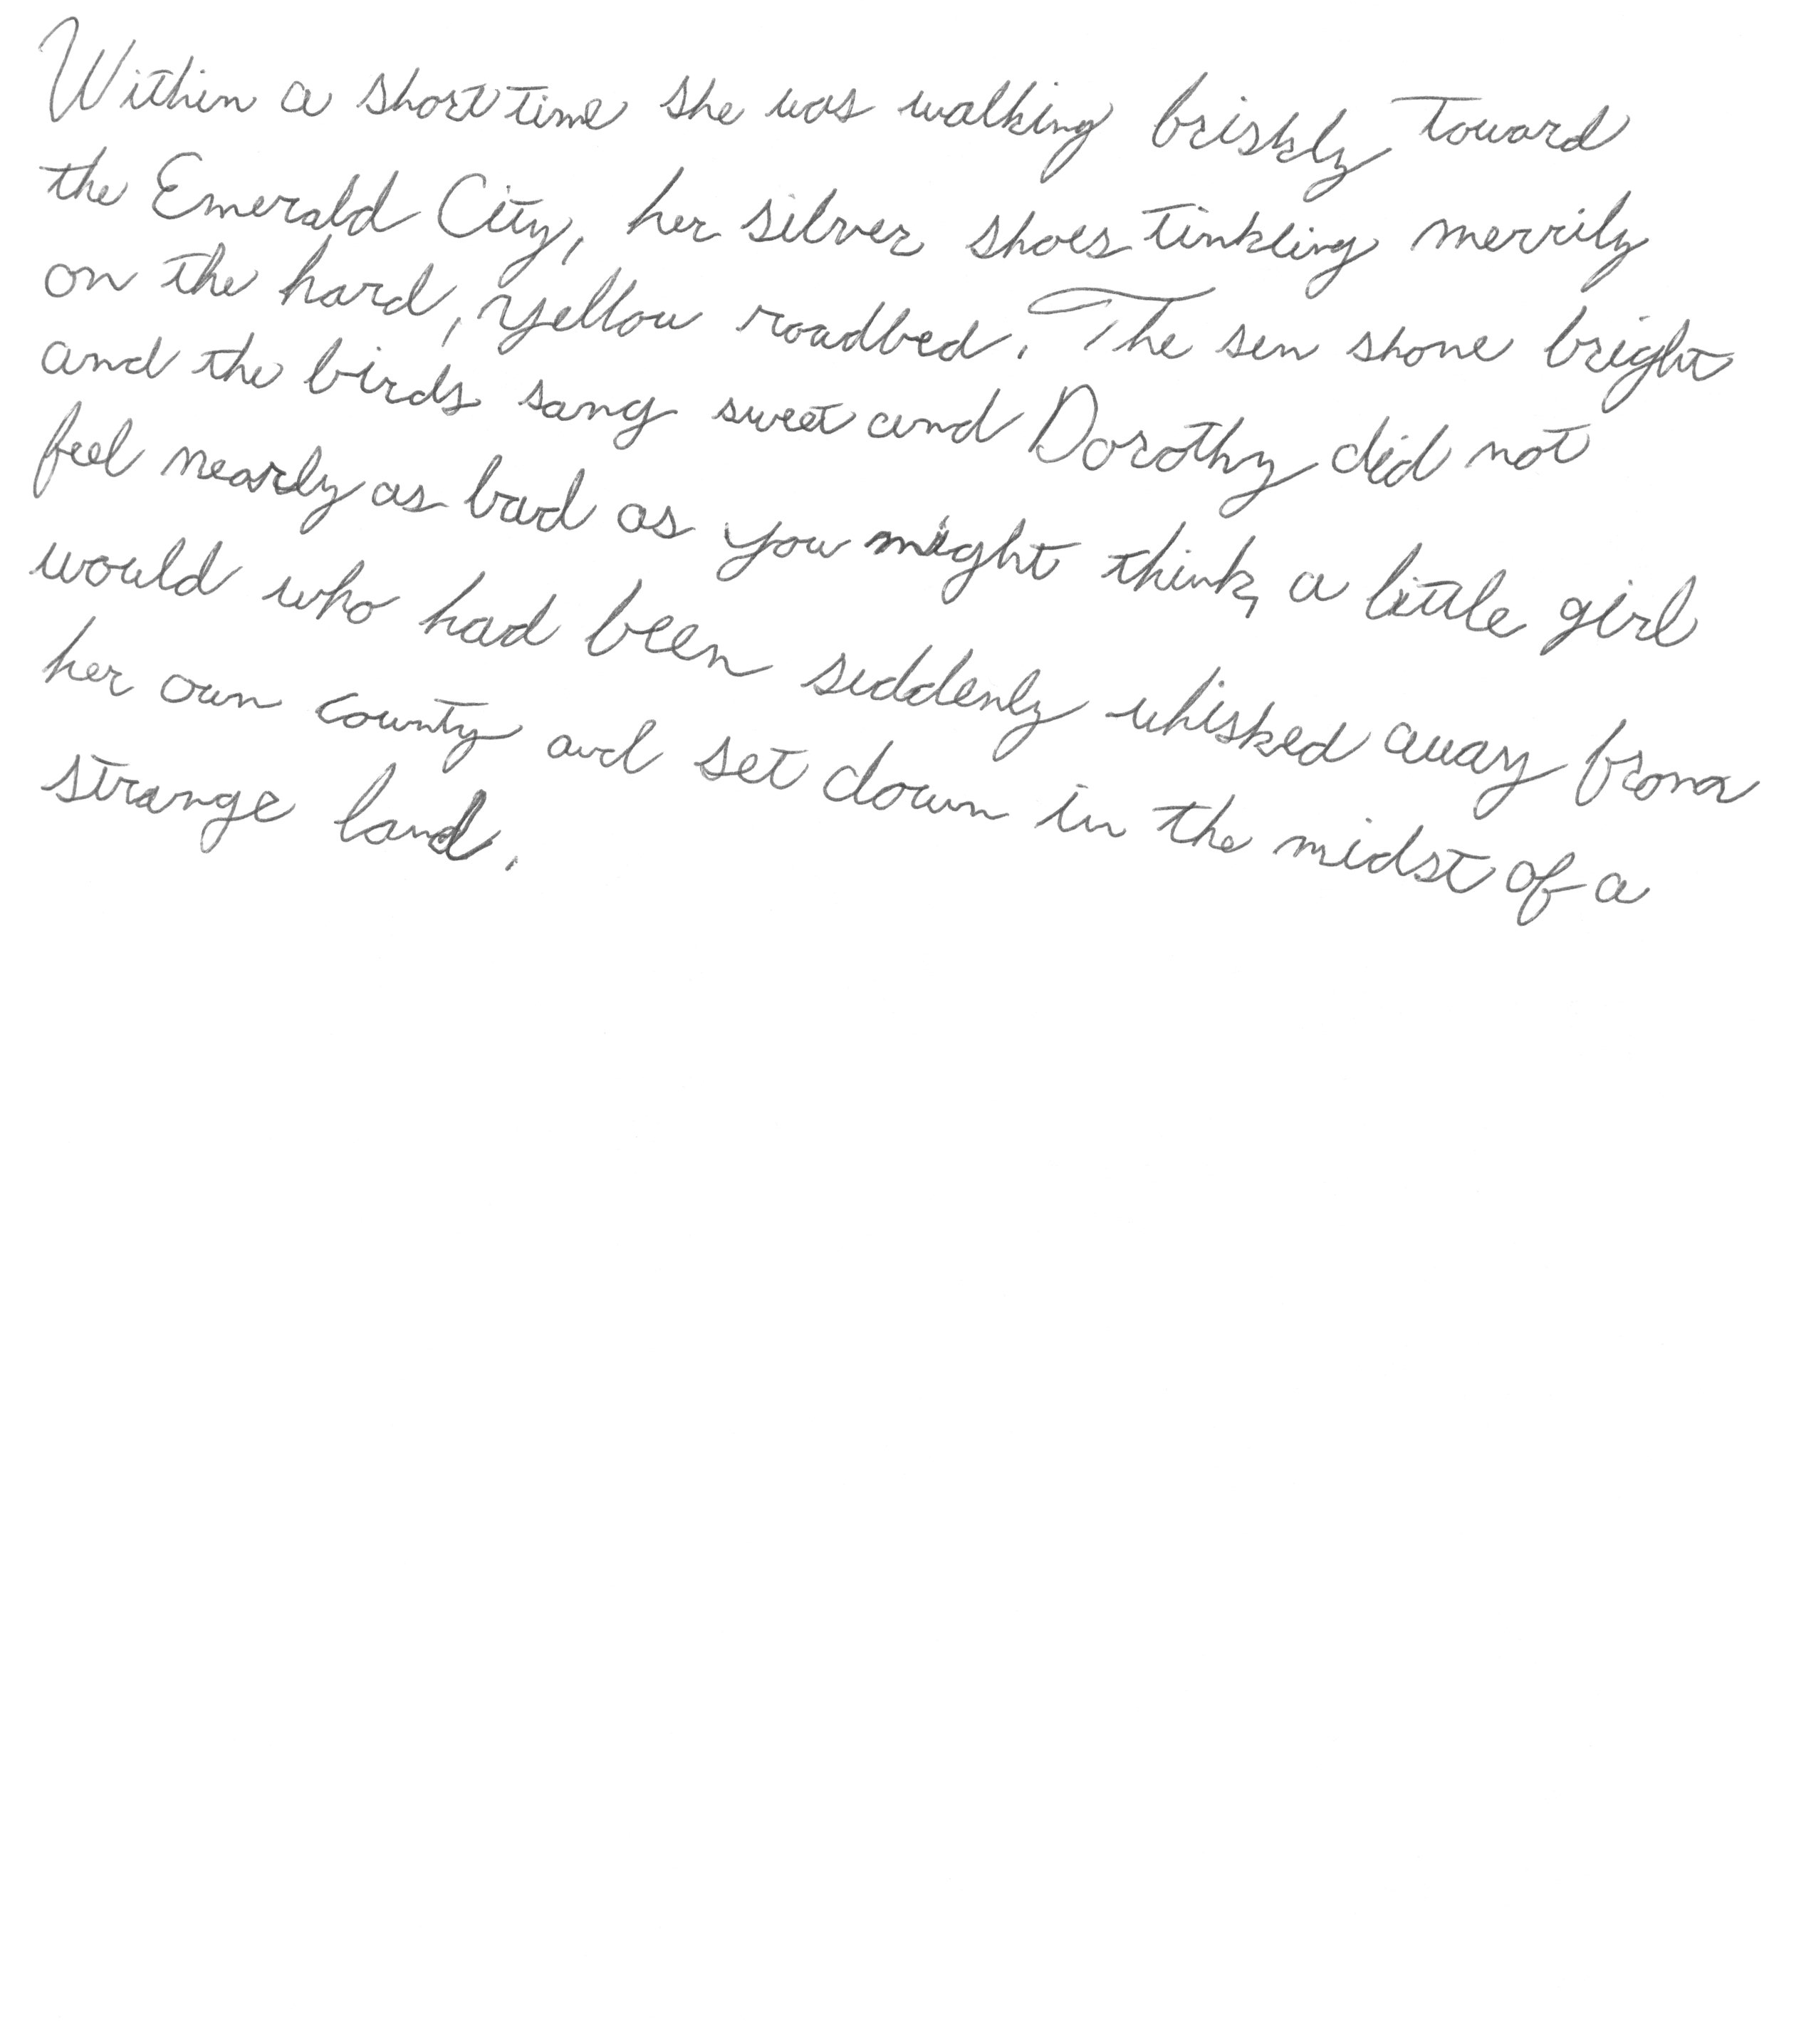 Within a short time she was walking briskly toward
the Emerald City, her silver shoes tinkling merrily
on the hard, yellow roadbed. The sun shone bright
and the birds sang sweet and Dorothy did not
feel nearly as bad as you might think a little girl
would who had been suddenly whisked away from
her own county and set down in the midst of a
strange land.